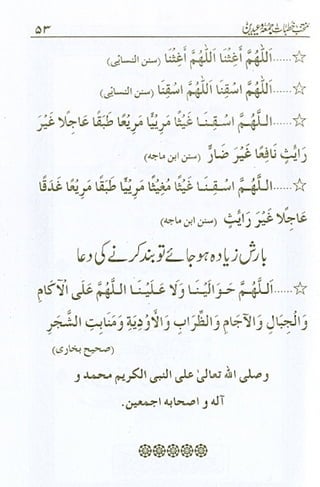 منتخب خطبات جمعہ و عیدین ۵۳
☆......اَللّٰهُمَّ اَغِثْنَا اَللّٰهُمَّ اَغِثْنَا (سنن النسائی)
☆......اَللّٰهُمَّ اسْقِنَا اَللّٰهُمَّ اسْقِنَا (سنن النسائی)
☆......اَللّٰهُمَّ اسْقِنَا غَيْثًا مَرِيْيًا مَرِيْعًا طَبَقًا عَاجِلًا غَيْرَ
رَايِثٍ نَافِعًا غَيْرَ ضَارٍّ (سنن ابن ماجه)
☆......اَللّٰهُمَّ اسْقِنَا غَيْثًا مُغِيْثًا مَرِيْيًا طَبَقًا مَرِيْعًا غَدَقًا
عَاجِلًا غَيْرَ رَايِثٍ (سنن ابن ماجه)
بارش زیادہ ہوجائے تو بند کرنے کی دعا
☆......اَللّٰهُمَّ حَوَالَيْنَا وَلَا عَلَيْنَا اَللّٰهُمَّ عَلَى الْآكَامِ
وَالْجِبَالِ وَالْآجَامِ وَالظِّرَابِ وَالْأَوْدِيَةِ وَمَنَابِتِ الشَّجَرِ
(صحیح بخاری)
وصلى الله تعالىٰ على النبى الكريم محمد و
آله و اصحابه اجمعين.